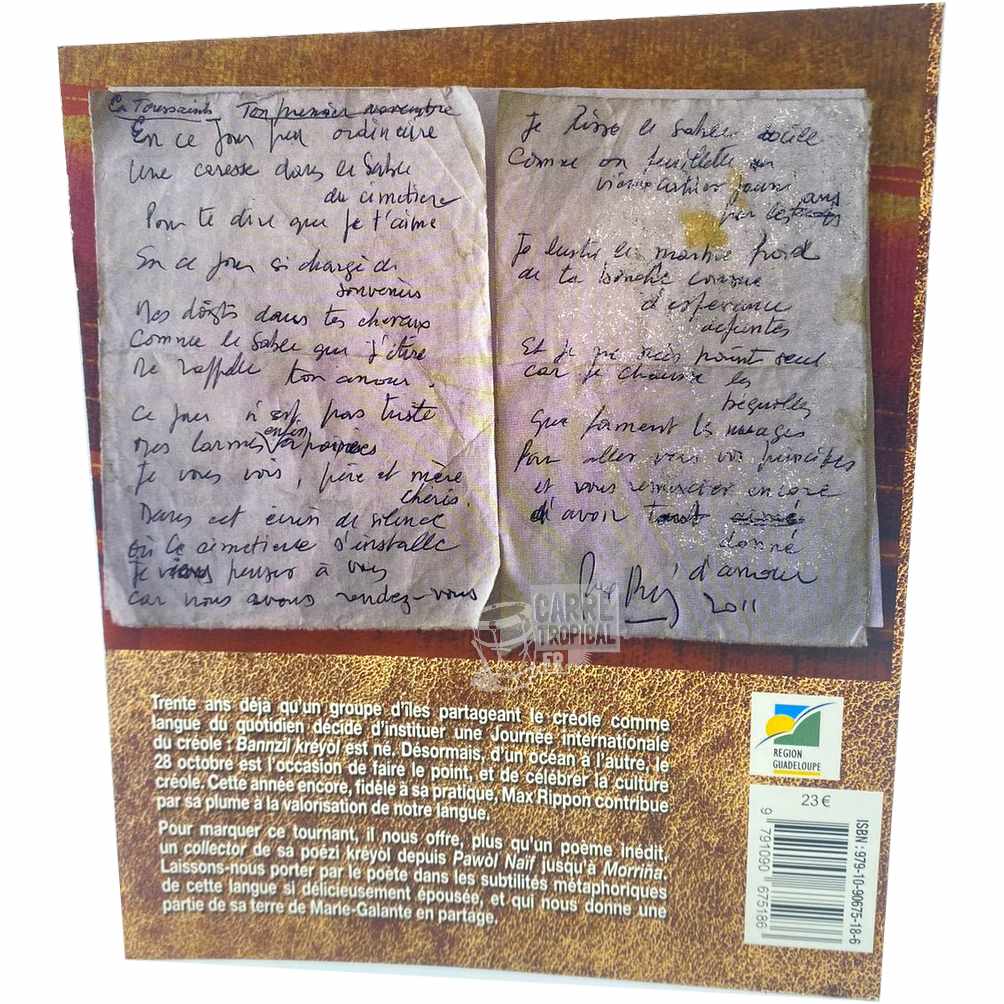 La Toussaints Ton premier novembre
En ce jour peu ordinaire
Une caresse dans le sable
du cimetiere
Pour te dire que je t'aime
En ce jour si chargé de
souvenirs
Mes doigts dans tes cheveux
Comme le sable que j'étire
Me rappelle ton amour.
Ce jour n'est pas triste
Mes larmes enfin
Je vous vois, père et mère
chéris.
Dans cet écrin de silence
où le cimetiere s'installe
Je viens penser à vous
car nous avons rendez-vous
Je lisse le sable
Comme on feuillette un
vieux cahier jauni
par les ans
Je lustre le marbre froid
de ta
d'esperance
Et je ne suis point seul
car je chausse les
bequilles
Que forment les nuages
Pour aller vers vos
et vous remercier encore
d'avoir tant aimé
donné
d'amour
2011
CARRE
TROPICAL
.FR
Trente ans déjà qu'un groupe d'îles partageant le créole comme
langue du quotidien décide d'instituer une Journée internationale
du créole : Bannzil kréyol est né. Désormais, d'un océan à l'autre, le
28 octobre est l'occasion de faire le point, et de célébrer la culture
créole. Cette année encore, fidèle à sa pratique, Max Rippon contribue
par sa plume à la valorisation de notre langue.
Pour marquer ce tournant, il nous offre, plus qu'un poème inédit,
un collector de sa poézi kréyòl depuis Pawòl Naïf jusqu'à Morriña.
Laissons-nous porter par le poète dans les subtilités métaphoriques
de cette langue si délicieusement épousée, et qui nous donne une
partie de sa terre de Marie-Galante en partage.
REGION
GUADELOUPE
23 €
ISBN : 979-10-90675-18-6
9 791090 675186